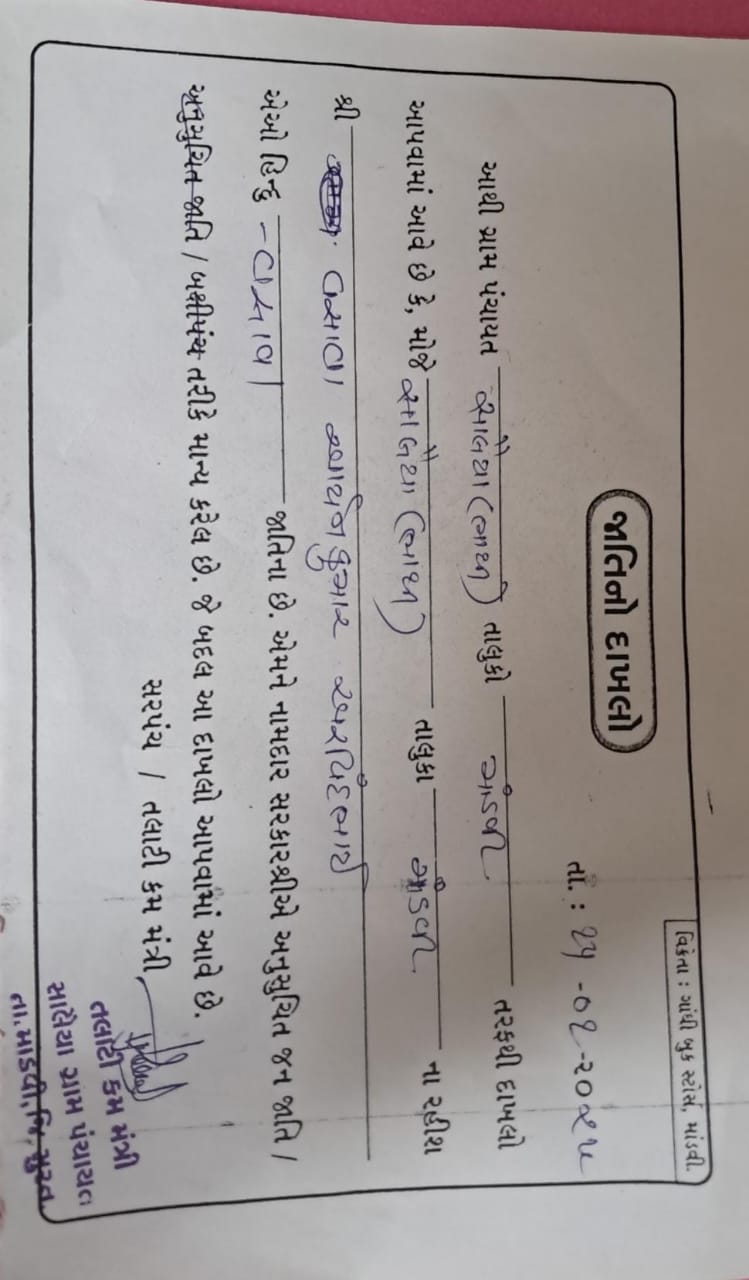 વિક્રેતા : ગાંધી બુક સ્ટોર્સ, માંડવી.
જાતિનો દાખલો
તા. : ૨૫-૦૨-૨૦૨૫
આથી ગ્રામ પંચાયત તાલુકો માંડવી તરફથી દાખલો
આપવામાં આવે છે કે, મોજે તાલુકા માંડવી ના રહીશ
શ્રી વસાવા
એઓ હિન્દુ - વસાવા જાતિના છે. એમને નામદાર સરકારશ્રીએ અનુસુચિત જન જાતિ /
અનુસુચિત જાતિ / બક્ષીપંચ તરીકે માન્ય કરેલ છે. જે બદલ આ દાખલો આપવામાં આવે છે.
સરપંચ / તલાટી કમ મંત્રી
તલાટી કમ મંત્રી
સાલૈયા ગ્રામ પંચાયત
તા.માંડવી, જિ. સુરત.